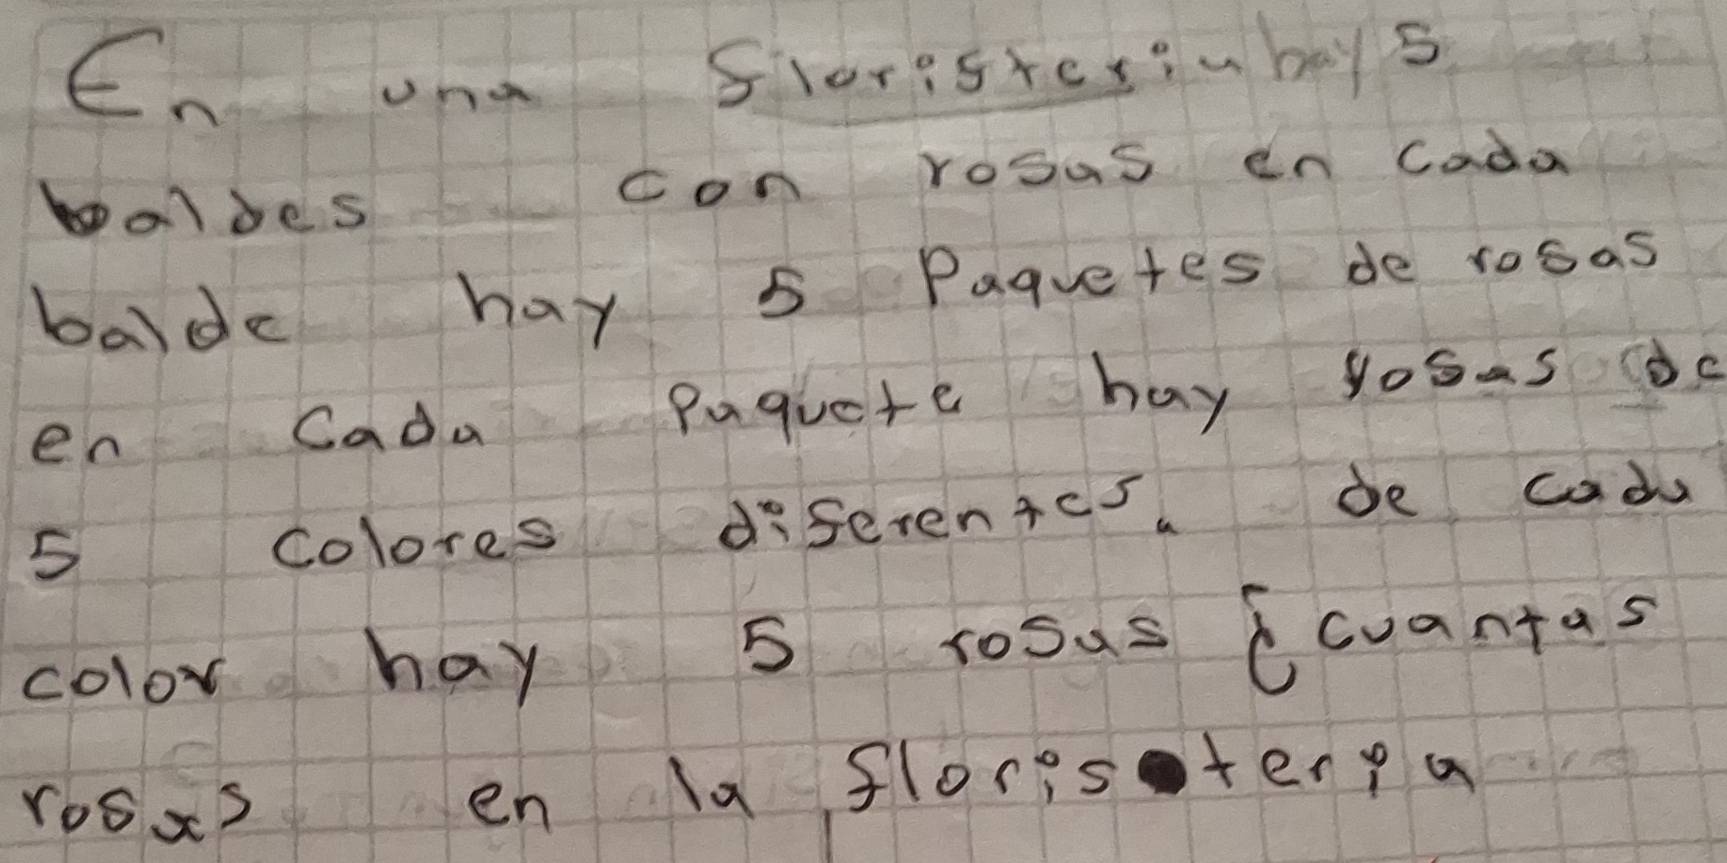 En una floristeria hay 5
baldes con rosas en cada
balde hay 5 Paquetes de rosas
en cada Paquete hay rosas de
5 colores diferentes. de cada
color hay 5 rosas ¿cuantas
rosas en la floristeria